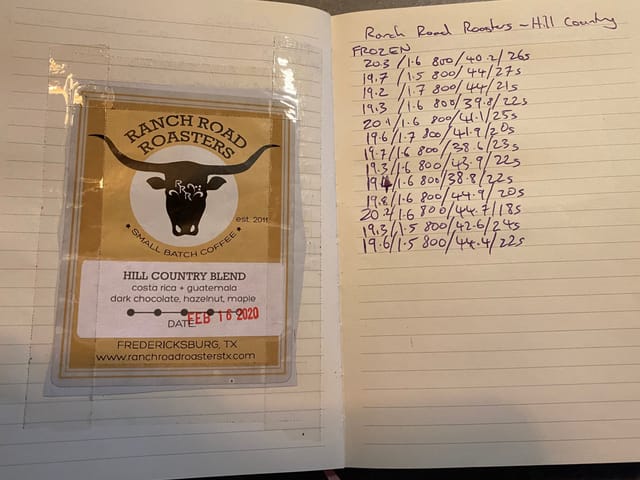 RANCH ROAD
ROASTERS
est. 2011
• SMALL BATCH COFFEE •
HILL COUNTRY BLEND
costa rica + guatemala
dark chocolate, hazelnut, maple
DATE FEB 16 2020
FREDERICKSBURG, TX
www.ranchroadroasterstx.com
Ranch Road Roasters - Hill Country
FROZEN
20.3 /1.6 800/40.2/26s
19.7 /1.5 800/44/27s
19.2 /1.7 800/44/21s
19.3 /1.6 800/39.8/22s
20.1 /1.6 800/41.1/25s
19.6/1.7 800/41.9/20s
19.7/1.6 800/38.6/23s
19.3/1.6 800/43.9/22s
19.4/1.6 800/38.8/22s
19.8/1.6 800/44.9/20s
20.2/1.6 800/44.7/18s
19.3/1.5 800/42.6/24s
19.6/1.5 800/44.4/22s